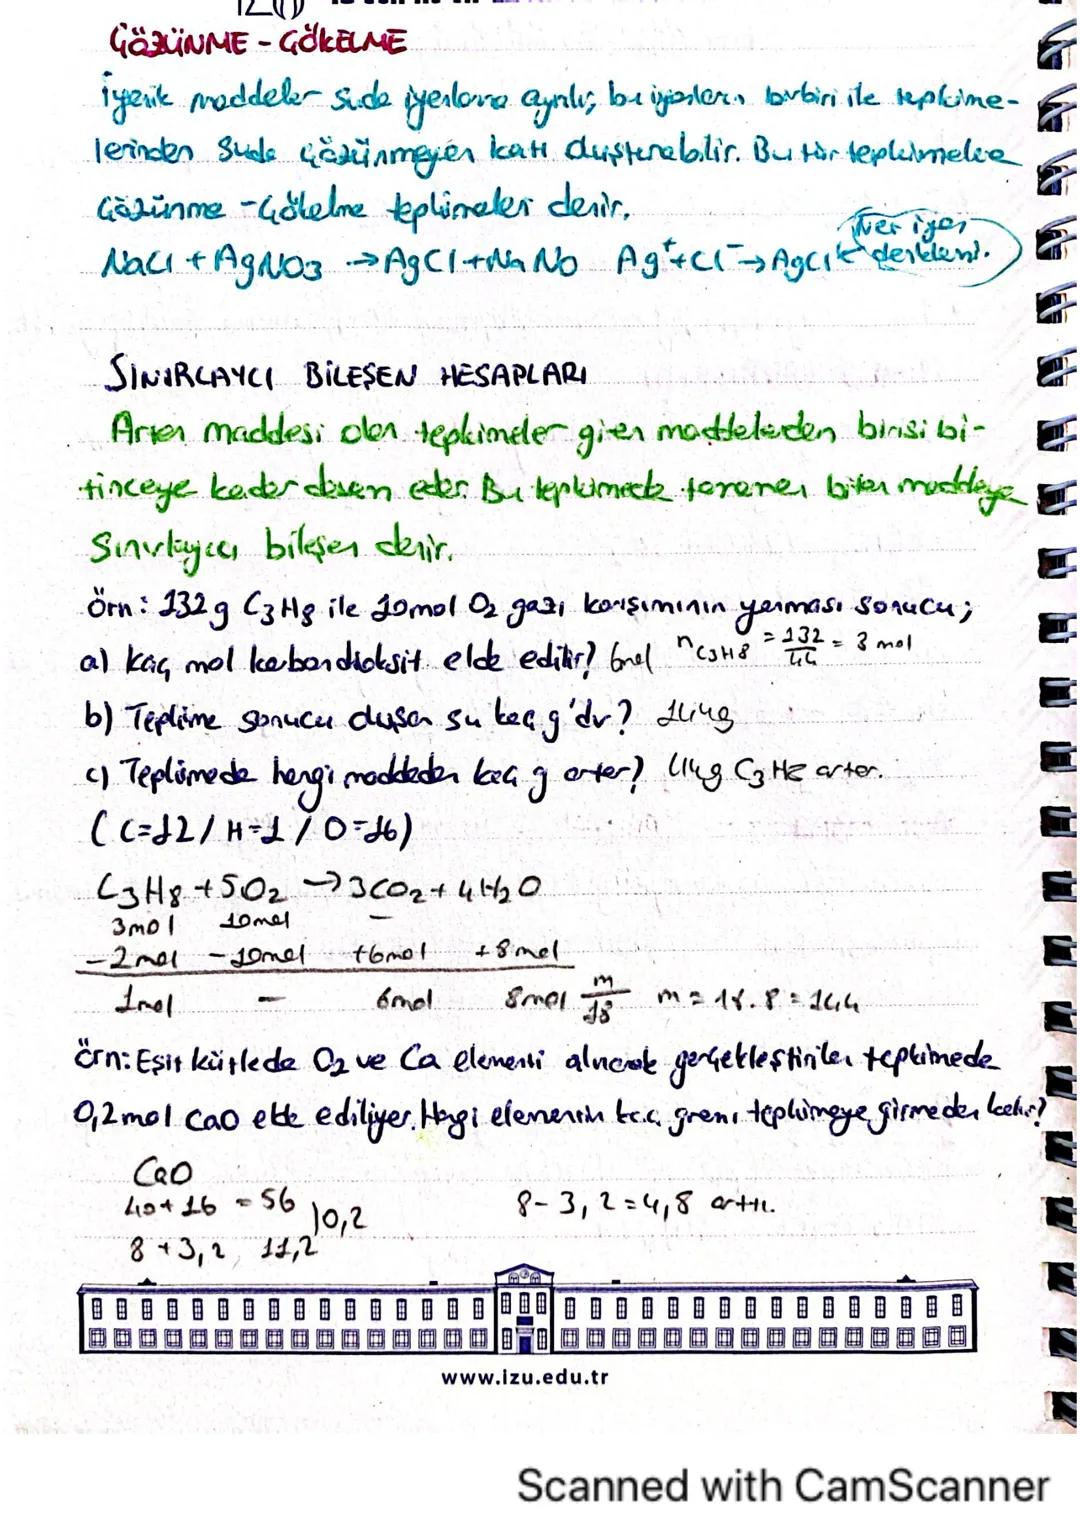 ÇÖZÜNME - ÇÖKELME
İyonik maddeler suda iyonlarına ayrılır; bu iyonların birbiri ile tepkime-
lerinden suda çözünmeyen katı oluşturabilir. Bu tür tepkimelere
Çözünme - Çökelme tepkimeleri denir.
NaCl + AgNO3 → AgCl + NaNO Ag⁺ + Cl⁻ → AgCl Net iyon
denklemi.
SINIRLAYICI BİLEŞEN HESAPLARI
Artan maddesi olan tepkimeler giren maddelerden birisi bi-
tinceye kadar devam eder. Bu tepkimede tamamen biten maddeye
Sınırlayıcı bileşen denir.
Örn: 132g C3H8 ile 10mol O2 gazı karışımının yanması sonucu;
a) kaç mol karbondioksit elde edilir? 6mol nC3H8 = 132/44 = 3 mol
b) Tepkime sonucu oluşan su kaç g'dır? 144g
c) Tepkimede hangi maddeden kaç g artar? 44g C3H8 artar.
(C=12 / H=1 / O=16)
C3H8 + 5O2 → 3CO2 + 4H2O
3mol 10mol -
-2mol -10mol +6mol +8mol
1mol - 6mol 8mol m/18 m = 18.8 = 144
Örn: Eşit kütlede O2 ve Ca elementi alınarak gerçekleştirilen tepkimede
0,2mol CaO elde ediliyor. Hangi elementin kaç gramı tepkimeye girmeden kalır?
CaO
40+16 = 56
)0,2
8-3,2=4,8 arttı.
8+3,2 11,2
www.izu.edu.tr
Scanned with CamScanner